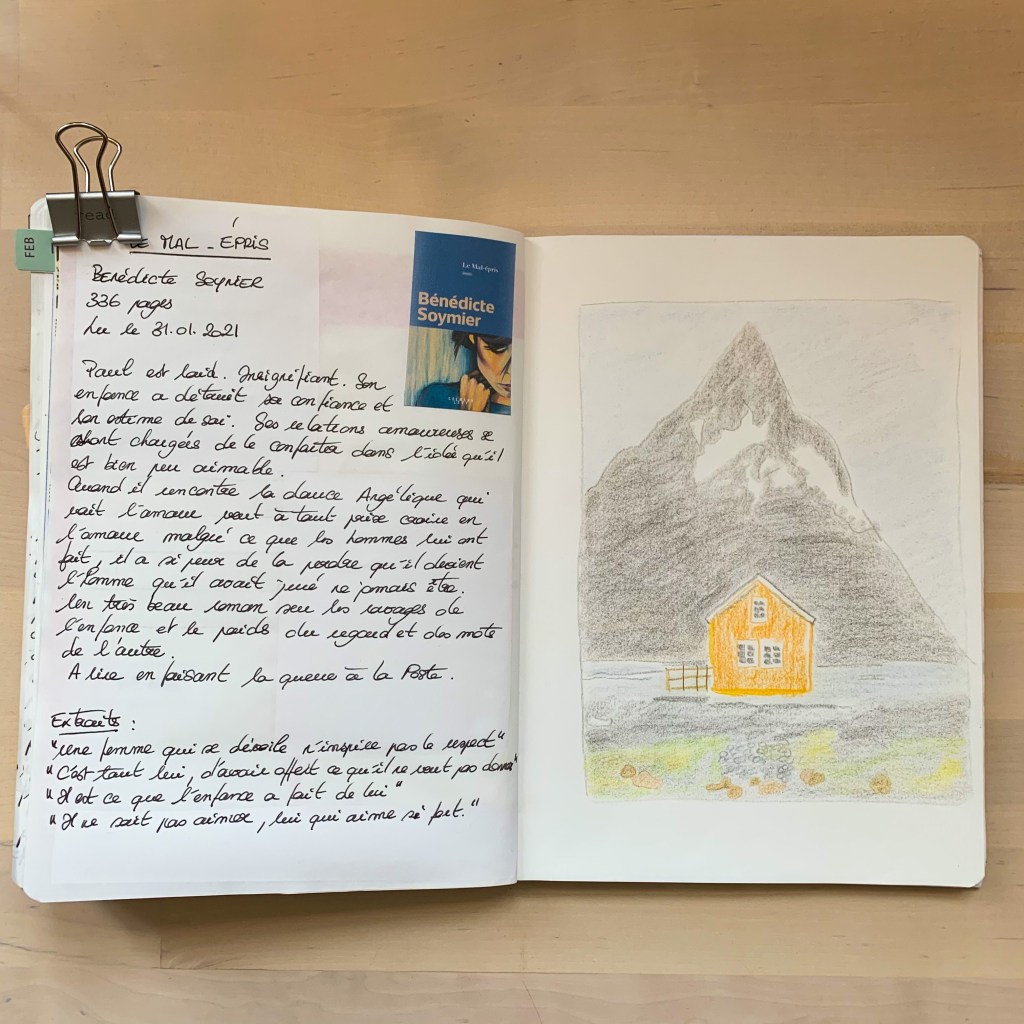 read
FEB
LE MAL-ÉPRIS
BENÉDICTE SOYMIER
336 pages
Lu le 31.01.2021
Le Mal-épris
Bénédicte
Soymier
Paul est laid. Insignifiant. Son
enfance a détruit sa confiance et
son estime de soi. Ses relations amoureuses se
sont chargées de le conforter dans l'idée qu'il
est bien peu aimable.
Quand il rencontre la douce Angélique qui
voit l'amour veut à tout prix croire en
l'amour malgré ce que les hommes lui ont
fait, il a si peur de la perdre qu'il devient
l'homme qu'il avait juré ne jamais être.
Un très beau roman sur les ravages de
l'enfance et le poids du regard et des mots
de l'autre.
A lire en faisant la queue à la Poste.
Extraits :
"Une femme qui se dévoile n'inspire pas le respect"
"C'est tout lui, d'avoir offert ce qu'il ne veut pas donner"
"Il est ce que l'enfance a fait de lui"
"Il ne sait pas aimer, lui qui aime si fort."